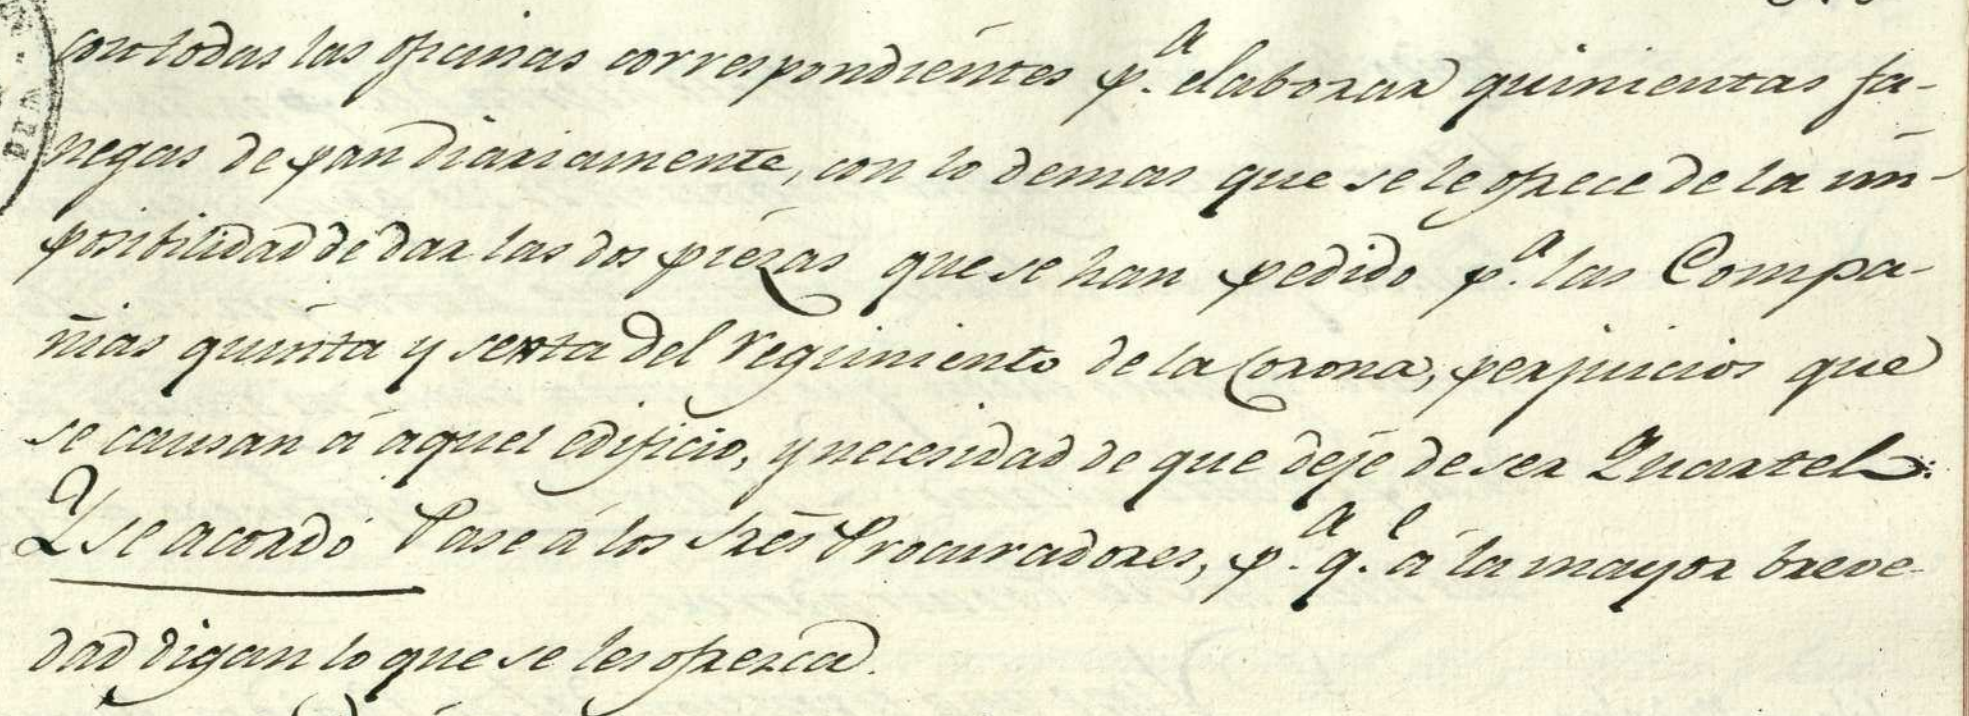 con todas las oficinas correspondientes p.ª elaborar quinientas fa-
negas de pan diariamente, con lo demas que se le ofrece de la im-
posibilidad de dar las dos piezas que se han pedido p.ª las Compa-
ñias quinta y sexta del regimiento de la Corona, perjuicios que
se causan á aquel edificio, y necesidad de que deje de ser Quartel:
Y se acordó Pase á los Sres Procuradores, p.ª q.e á la mayor breve-
dad digan lo que se les ofrezca.